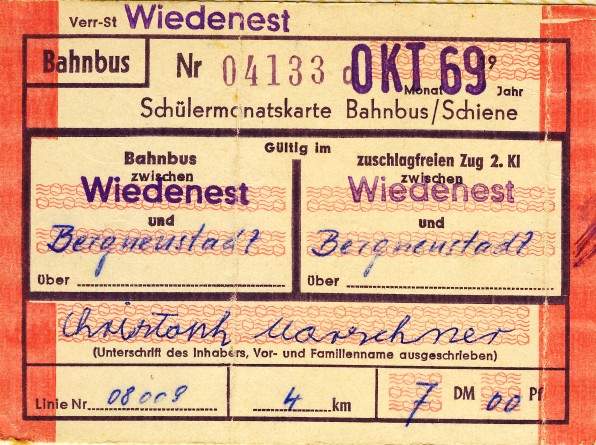 Verr-St Wiedenest
Bahnbus Nr 04133 OKT 69
Monat Jahr
Schülermonatskarte Bahnbus/Schiene
Gültig im
Bahnbus
zwischen
Wiedenest
und
Bergneustadt
über
zuschlagfreien Zug 2. Kl
zwischen
Wiedenest
und
Bergneustadt
über
Christoph Marschner
(Unterschrift des Inhabers, Vor- und Familienname ausgeschrieben)
Linie Nr. 08009 4 km 7 DM 00 Pf